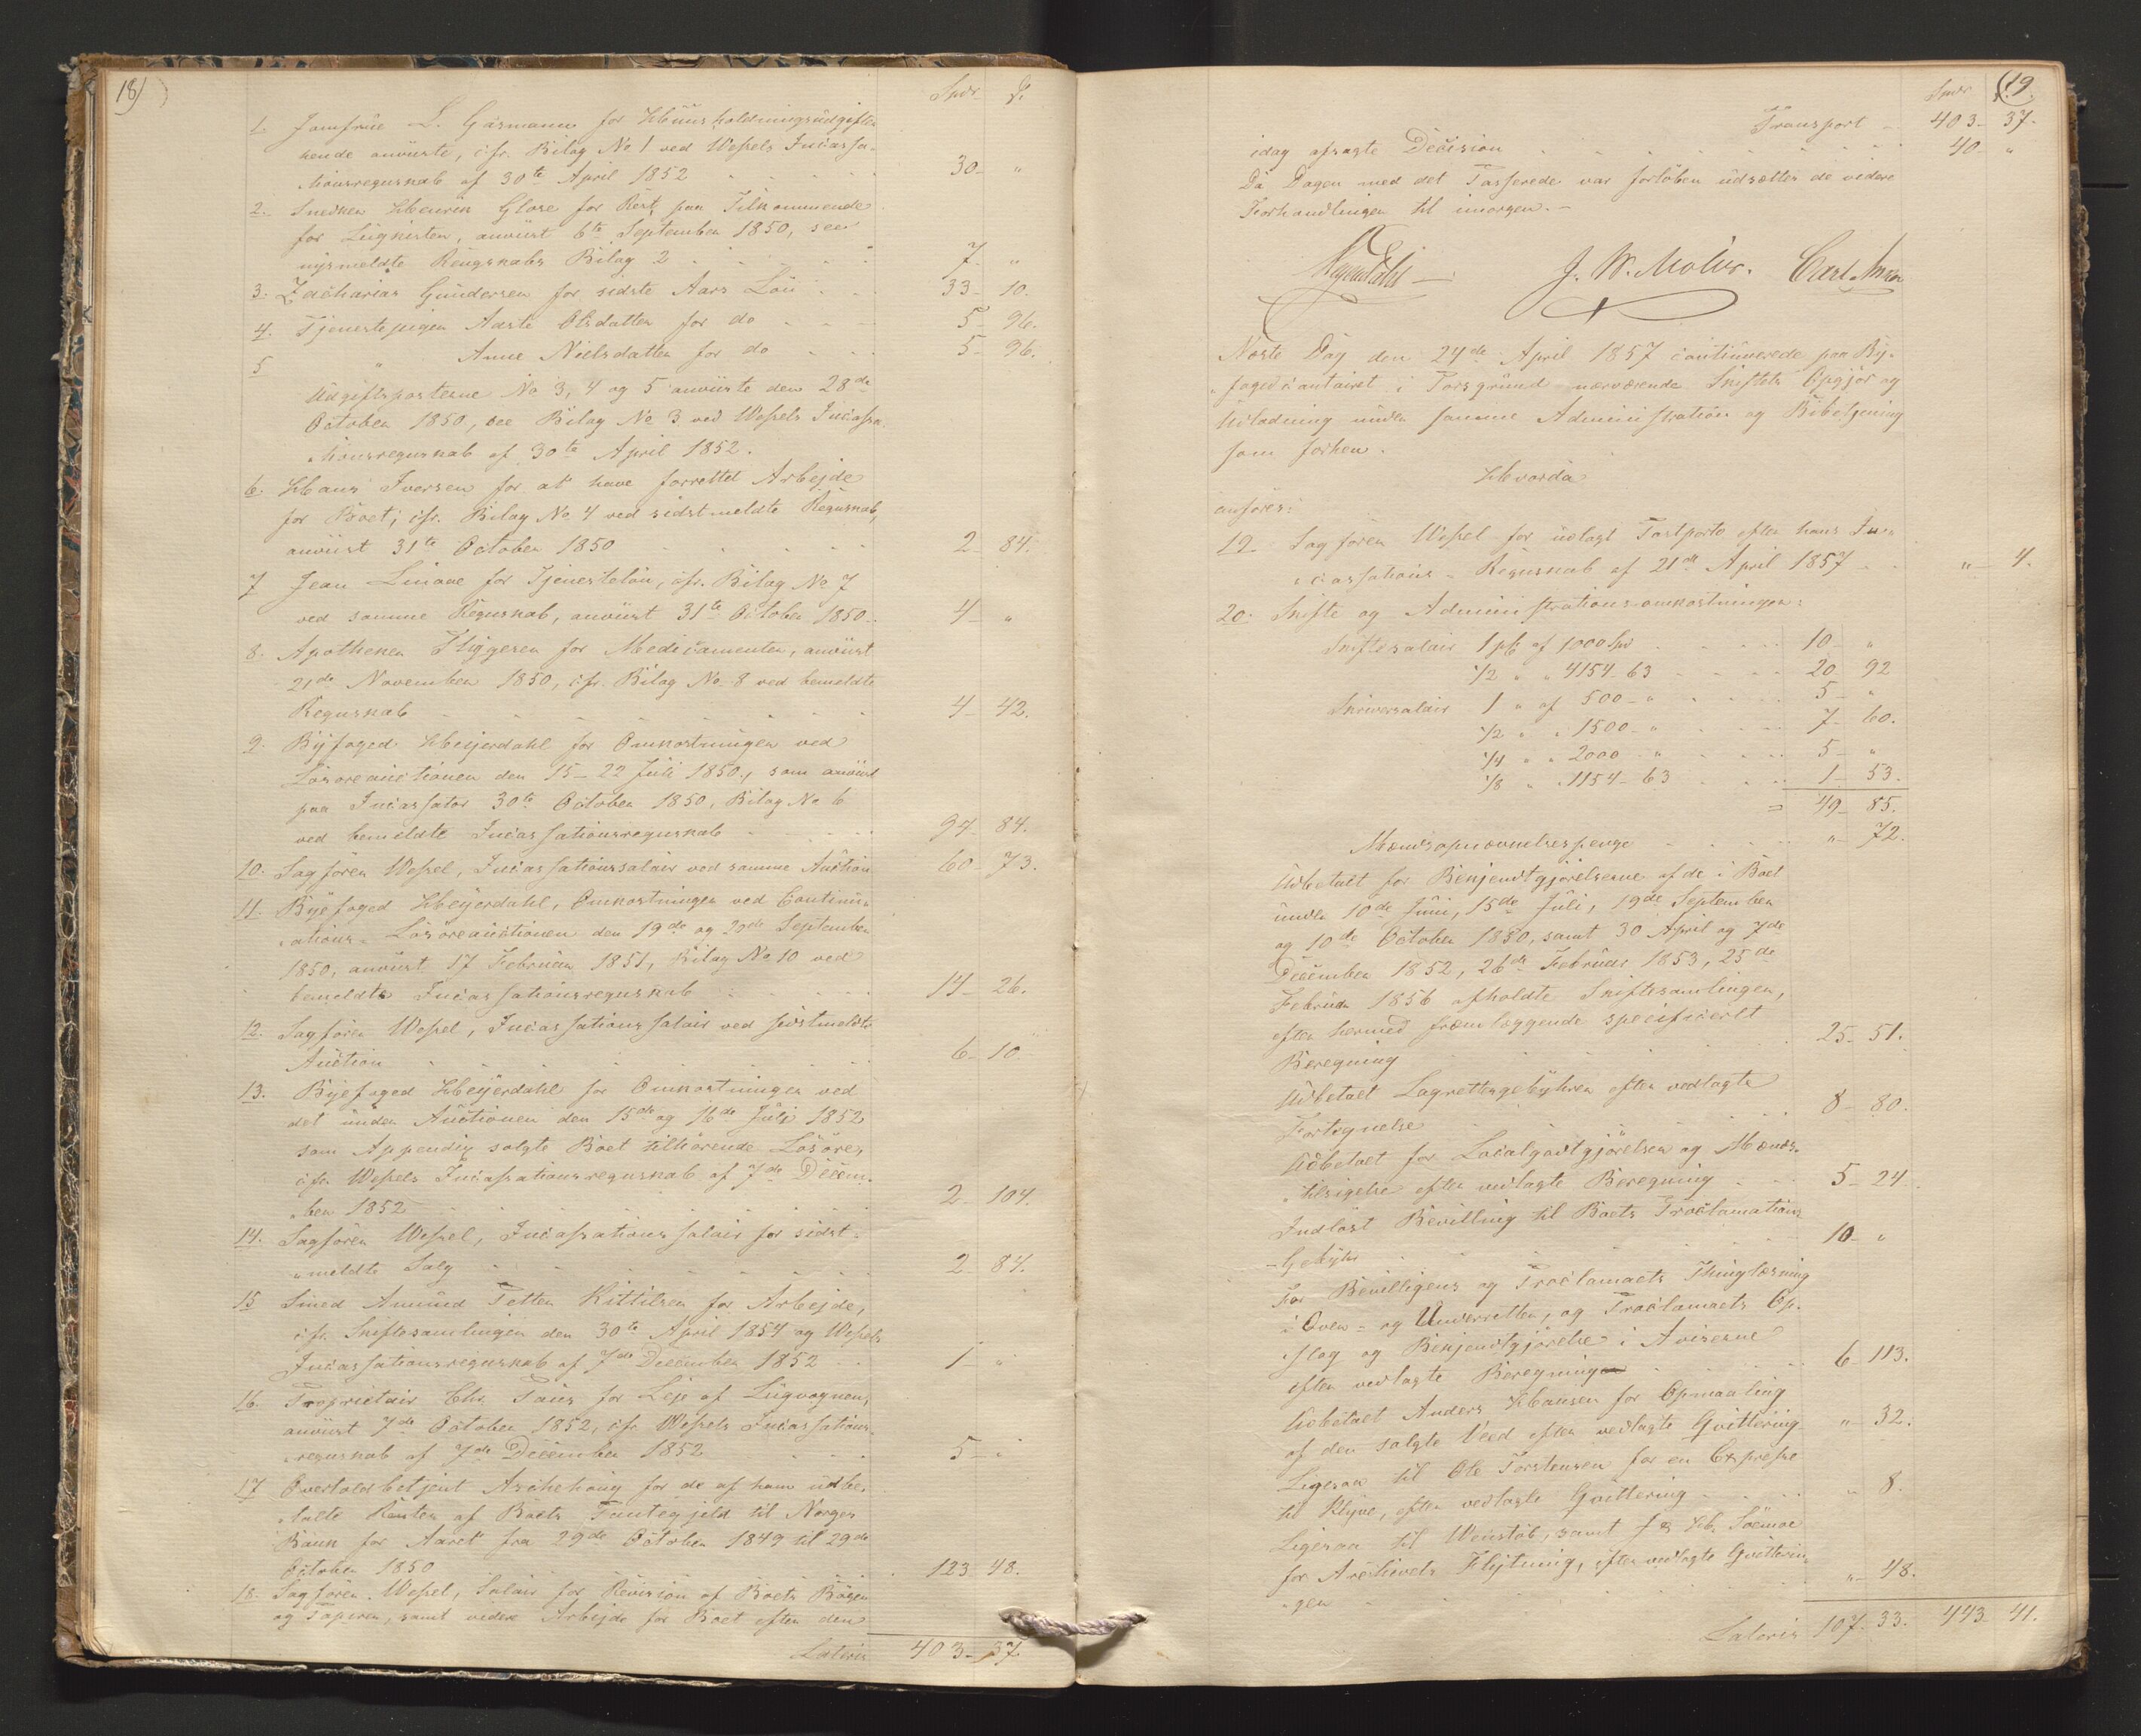 18)
Spdr. ß.
1. Jomfrue L. Gasmann for Huusholdningsudgifter
hende anviiste, cfr. Bilag No 1 ved Wessels Incassa-
tionsregnskab af 30te April 1852 30- "
2. Snedker Henrik Glose for Rest paa Tilkommende
for Liigkisten, anviist 6te September 1850, see
nysmeldte Rengskabs Bilag 2 7- "
3. Zacharias Gundersen for sidste Aars Løn 33- 10.
4. Tjenestepigen Aaste Olsdatter for do 5- 96.
5 " Anne Nielsdatter for do 5- 96.
Udgiftsposterne No 3, 4 og 5 anviiste den 28de
October 1850, see Bilag No 3 ved Wessels Incassa-
tionsregnskab af 30te April 1852.
6. Hans Iversen for at have forrettet Arbejde
for Boet; cfr. Bilag No 4 ved sidstmeldte Regnskab,
anviist 31te October 1850 2- 84.
7 Jean Linaae for Tjenesteløn, cfr. Bilag No 7
ved samme Regnskab, anviist 31te October 1850 4- "
8. Apotheker Flügger for Medicamenter, anviist
21de November 1850, cfr. Bilag No 8 ved bemeldte
Regnskab 4- 42.
9. Byfoged Heijerdahl for Omkostninger ved
Løsøreauctionen den 15-22 Juli 1850, som anviist
paa Incassator 30te October 1850, Bilag No 6
ved bemeldte Incassationsregnskab 94- 84.
10. Sagfører Wessel, Incassationssalair ved samme Auction 60- 73.
11. Byefoged Heijerdahl, Omkostninger ved Continu-
ations-Løsøreauctionen den 19de og 20de September
1850, anviist 17 Februar 1851, Bilag No 10 ved
bemeldte Incassationsregnskab 14- 26.
12. Sagfører Wessel, Incassationssalair ved sidstmeldte
Auction 6- 10.
13. Byefoged Heijerdahl for Omkostninger ved
det under Auctionen den 15de og 16de Juli 1852
som Appendix solgte Boet tilhørende Løsøre,
cfr. Wessels Incassationsregnskab af 7de Decem-
ber 1852 2- 104.
14. Sagfører Wessel, Incassationssalair for sidst-
meldte Salg 2- 84.
15 Smed Amund Tetter Kittilsen for Arbejde,
cfr. Skiftesamlingen den 30te April 1854 og Wessels
Incassationsregnskab af 7de December 1852 1- "
16. Proprietair Chr. Paus for Leje af Liigvognen,
anviist 7de October 1852, cfr. Wessels Incassations-
regnskab af 7de December 1852 5- "
17 Overtoldbetjent Aschehoug for de af ham udbe-
talte Renter af Boets Pantegjeld til Norges
Bank for Aaret fra 29de October 1849 til 29de
October 1850 123- 48.
18. Sagfører Wessel, Salair for Revision af Boets Bøger
og Papirer, samt videre Arbejde for Boet efter den
Lateris 403- 37
(19.
Spdr
Transport 403- 37.
idag afsagte Decision 40- "
Da Dagen med det Passerede var forløben udsættes de videre
Forhandlinger til imorgen.-
Heijerdahl J. W. Møller. Carl Anker
Næste Dag den 24de April 1857 continuerede paa By-
fogedcontoiret i Porsgrund nærværende Skiftets Opgjør og
Udlodning under samme Administration og Bibetjening
som forhen.
Hvorda
anføres:
19. Sagfører Wessel for udlagt Postporto efter hans In-
cassations-Regnskab af 21de April 1857 "- 4.
20. Skifte og Administrationsomkostninger:
Skiftesalair 1 pCt. af 1000 Spd 10- "
1/2 " " 4154- 63 20- 92
Skriversalair 1 " af 500- " 5- "
1/2 " " 1500- " 7- 60.
1/4 " " 2000- " 5- "
1/8 " . 1154- 63 1- 53.
= 49- 85.
Mændsopnævnelsespenge "- 72.
Udbetalt for Bekjendtgjørelserne af de i Boet
under 10de Juni, 15de Juli, 19de September
og 10de October 1850, samt 30 April og 7de
December 1852, 26de Februar 1853, 25de
Februar 1856 afholdte Skiftesamlinger,
efter hermed fremlæggende specificerte
Beregning 25- 51.
Udbetalt Lagrettesgebyhrer efter vedlagte
Fortegnelse 8- 80.
Udbetalt for Localgodtgjørelser og Mænds-
tilsigelse efter vedlagte Beregning 5- 24.
Indløst Bevilling til Boets Proclamation
-Gebyhr 10- "
For Bevillingens og Proclamaets Thinglæsning
i Over- og Underretten, og Proclamaets Op-
slag og Bekjendtgjørelse i Aviserne
efter vedlagte Beregning 6- 113.
Udbetalt Anders Hansen for Opmaaling
af den solgte Veed efter vedlagte Qvittering "- 32.
Ligesaa til Ole Torstensen for en Expresse
til Klyve, efter vedlagte Qvittering "- 8.
Ligesaa til Wenstøb, samt
for Archivets Flytning, efter vedlagte Qvitterin-
ger "- 48.
Lateris 107- 33. 443- 41.